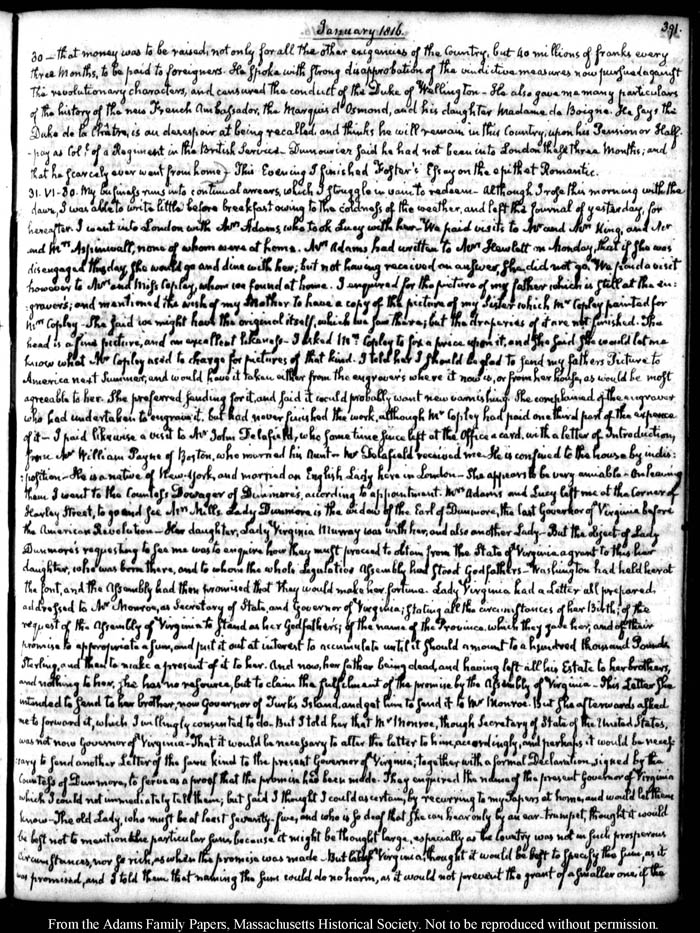 January 1816.
391.
30 — that money was to be raised, not only for all the other exigencies of the Country, but 40 millions of franks every
three Months, to be paid to foreigners. He spoke with strong disapprobation of the vindictive measures now pursued against
the revolutionary characters, and censured the conduct of the Duke of Wellington — He also gave me many particulars
of the history of the new French Ambassador, the Marquis d'Osmond, and his daughter Madame de Boigne. He says the
Duke de la Châtre, is au desespoir at being recalled, and thinks he will remain in this Country, upon his Pension or Half-
-pay as Col. of a Regiment in the British Service — Dumouriez said he had not been into London these three Months; and
that he scarcely ever went from home) This Evening I finished Foster's Essay on the epithet Romantic.
31. VI-30. My business runs into continual arrears, which I struggle in vain to redeem — Although I rose this morning with the
dawn, I was able to write little before breakfast owing to the coldness of the weather, and left the Journal of yesterday, for
hereafter. I went into London with Mrs Adams, who took Lucy with her. We paid visits to Mr and Mrs King, and Mr
and Mrs Aspinwall, none of whom were at home. Mrs Adams had written to Mrs Hewlett on Monday, that if She was
disengaged this day, She would go and dine with her; but not having received an answer, She did not go. We paid a visit
however to Mrs and Miss Copley, whom we found at home. I enquired for the picture of my father which is still at the en-
:gravers; and mentioned the wish of my Mother to have a copy of the picture of my Sister which Mr Copley painted for
Mrs Copley — She said we might have the original itself, which we saw there; but the draperies of it are not finished. The
head is a fine picture, and an excellent likeness — I asked Mrs Copley to fix a price upon it, and She said She would let me
know what Mr Copley used to charge for pictures of that kind. I told her I should be glad to send my fathers Picture to
America next Summer, and would have it taken either from the engravers where it now is, or from her house, as would be most
agreeable to her. She preferred sending for it, and said it would probably want new varnishing. She complained of the engraver
who had undertaken to engrave it, but had never finished the work, although Mr Copley had paid one third part of the expence
of it — I paid likewise a visit to Mr John Delafield, who some time since left at the Office a card, with a letter of Introduction,
from Mr William Payne of Boston, who married his Aunt — Mr Delafield received me. He is confined to the house by indis:
:position — He is a native of New-York, and married an English Lady here in London — She appears to be very amiable — On leaving
them I went to the Countess Dowager of Dunmore's, according to appointment. Mrs Adams and Lucy left me at the corner of
Harley Street, to go and see Mrs Mills. Lady Dunmore is the widow of the Earl of Dunmore, the last Governor of Virginia before
the American Revolution — Her daughter, Lady Virginia Murray was with her, and also another Lady — But the object of Lady
Dunmore's requesting to see me was to enquire how they must proceed to obtain from the State of Virginia a grant to this her
daughter, who was born there, and to whom the whole Legislative Assembly had stood Godfathers — Washington had held her at
the font, and the Assembly had then promised that they would make her fortune. Lady Virginia had a letter all prepared,
addressed to Mr Monroe, as Secretary of State, and Governor of Virginia; stating all the circumstances of her Birth; of the
request of the Assembly of Virginia to stand as her Godfathers; of the name of the Province which they gave her, and of their
promise to appropriate a sum, and put it out at interest to accumulate until it should amount to a hundred thousand Pounds
Sterling, and then to make a present of it to her. And now, her father being dead, and having left all his Estate to her brothers,
and nothing to her, She has no resource, but to claim the fulfilment of the promise by the Assembly of Virginia — This Letter She
intended to send to her brother, now Governor of Turks Island, and get him to send it to Mr Monroe. But She afterwards asked
me to forward it, which I willingly consented to do. But I told her that Mr Monroe, though Secretary of State of the United States,
was not now Governor of Virginia — That it would be necessary to alter the letter to him, accordingly, and perhaps it would be neces-
:sary to send another Letter of the same kind to the present Governor of Virginia; together with a formal Declaration signed by the
Countess of Dunmore, to serve as a proof that the promise had been made. They enquired the name of the present Governor of Virginia
which I could not immediately tell them; but said I thought I could ascertain, by recurring to my Papers at home, and would let them
know — The old Lady, who must be at least seventy-five, and who is so deaf that She can hear only by an ear-trumpet, thought it would
be best not to mention the particular sum, because it might be thought large, especially as the Country was not in such prosperous
circumstances, nor so rich, as when the promise was made — But Lady Virginia thought it would be best to specify the sum, as it
was promised, and I told them that naming the sum could do no harm, as it would not prevent the grant of a smaller one, if the
From the Adams Family Papers, Massachusetts Historical Society. Not to be reproduced without permission.